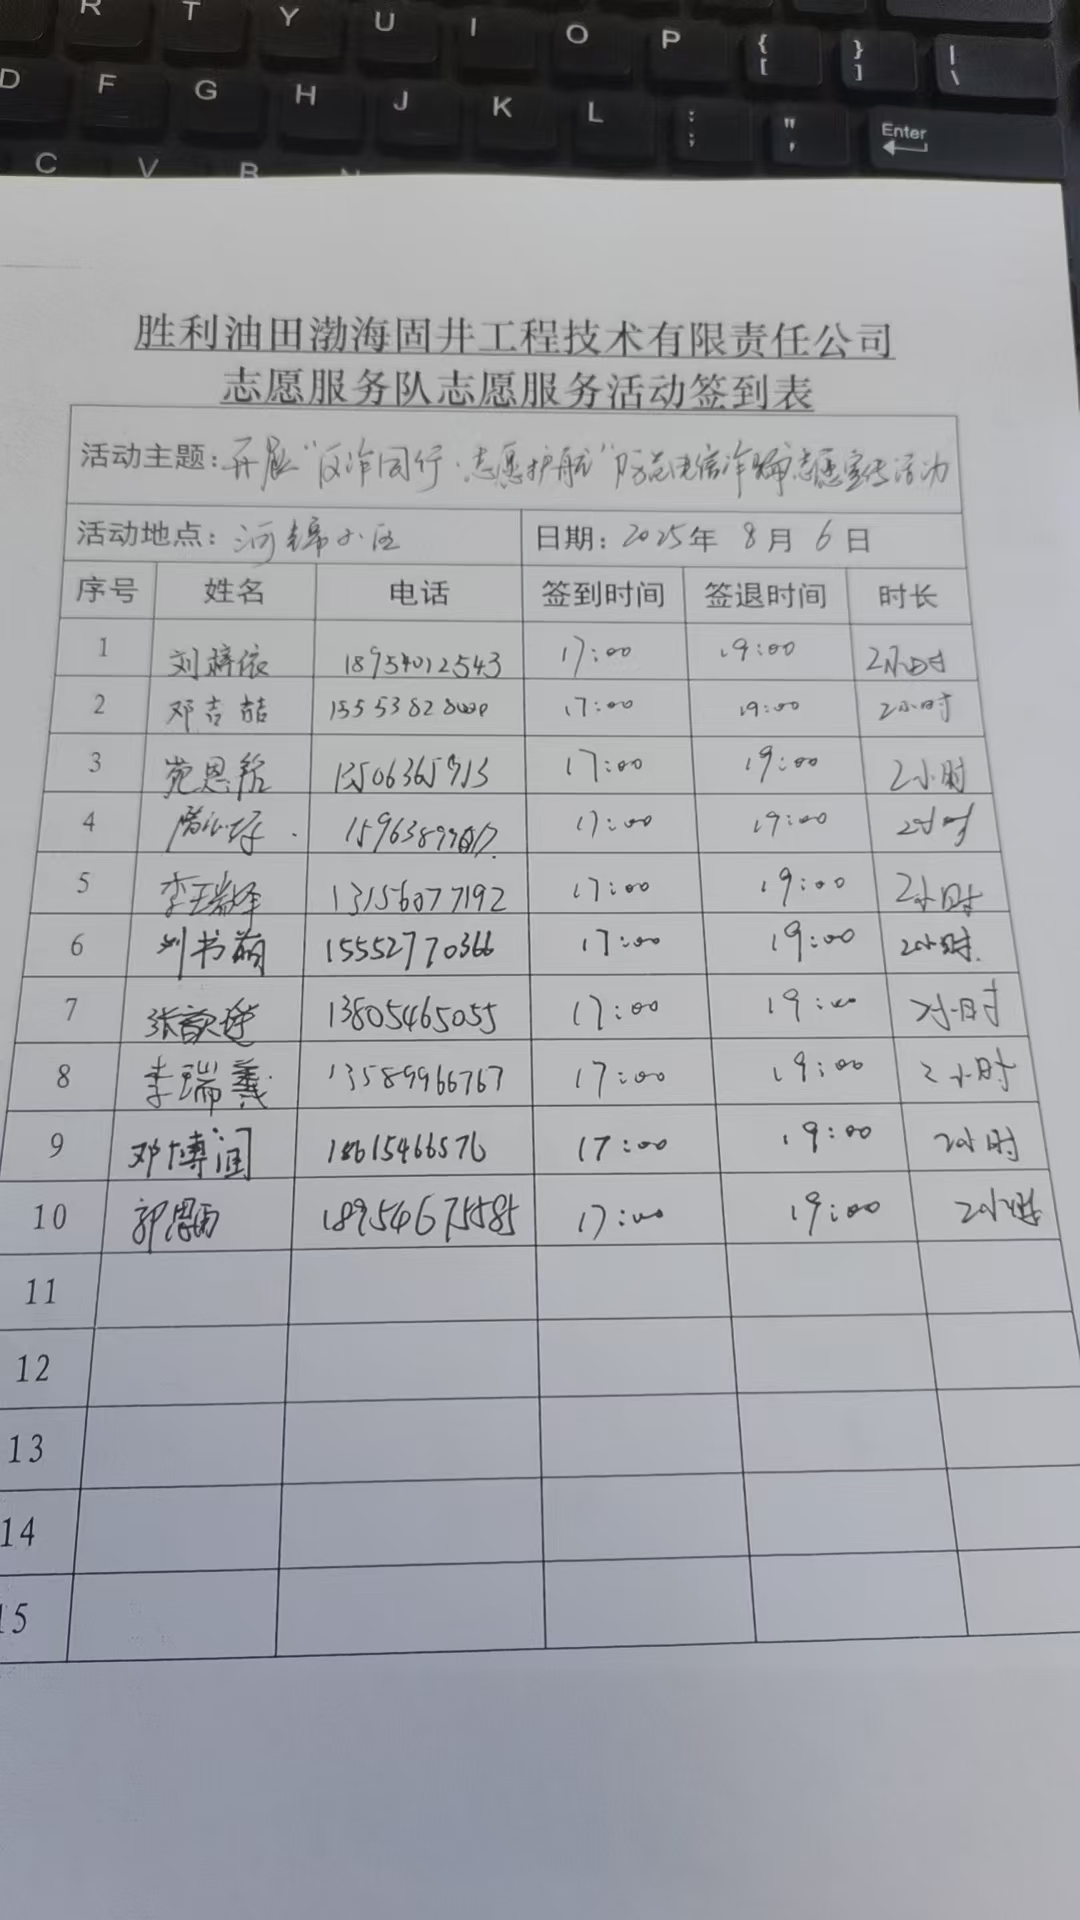 R T Y U I O P { [ } ] | \
D F G H J K L : ; " ' Enter
C V B N
胜利油田渤海固井工程技术有限责任公司
志愿服务队志愿服务活动签到表
活动主题：开展“反诈同行·志愿护航”防范电信诈骗志愿宣传活动
活动地点：河 小区 日期：2025年 8月 6日
序号 姓名 电话 签到时间 签退时间 时长
1 刘梓依 18954012543 17:00 19:00 2小时
2 邓吉喆 1555382 17:00 19:00 2小时
3 苑恩 13506365913 17:00 19:00 2小时
4 15963899 17:00 19:00 2小时
5 李瑞泽 13156077192 17:00 19:00 2小时
6 刘书萌 15552770366 17:00 19:00 2小时.
7 张歆 13805465055 17:00 19:00 2小时
8 李瑞羲 13589966767 17:00 19:00 2小时
9 邓博润 18615466576 17:00 19:00 2小时
10 郭恩雨 18954675585 17:00 19:00 2小时
11
12
13
14
15